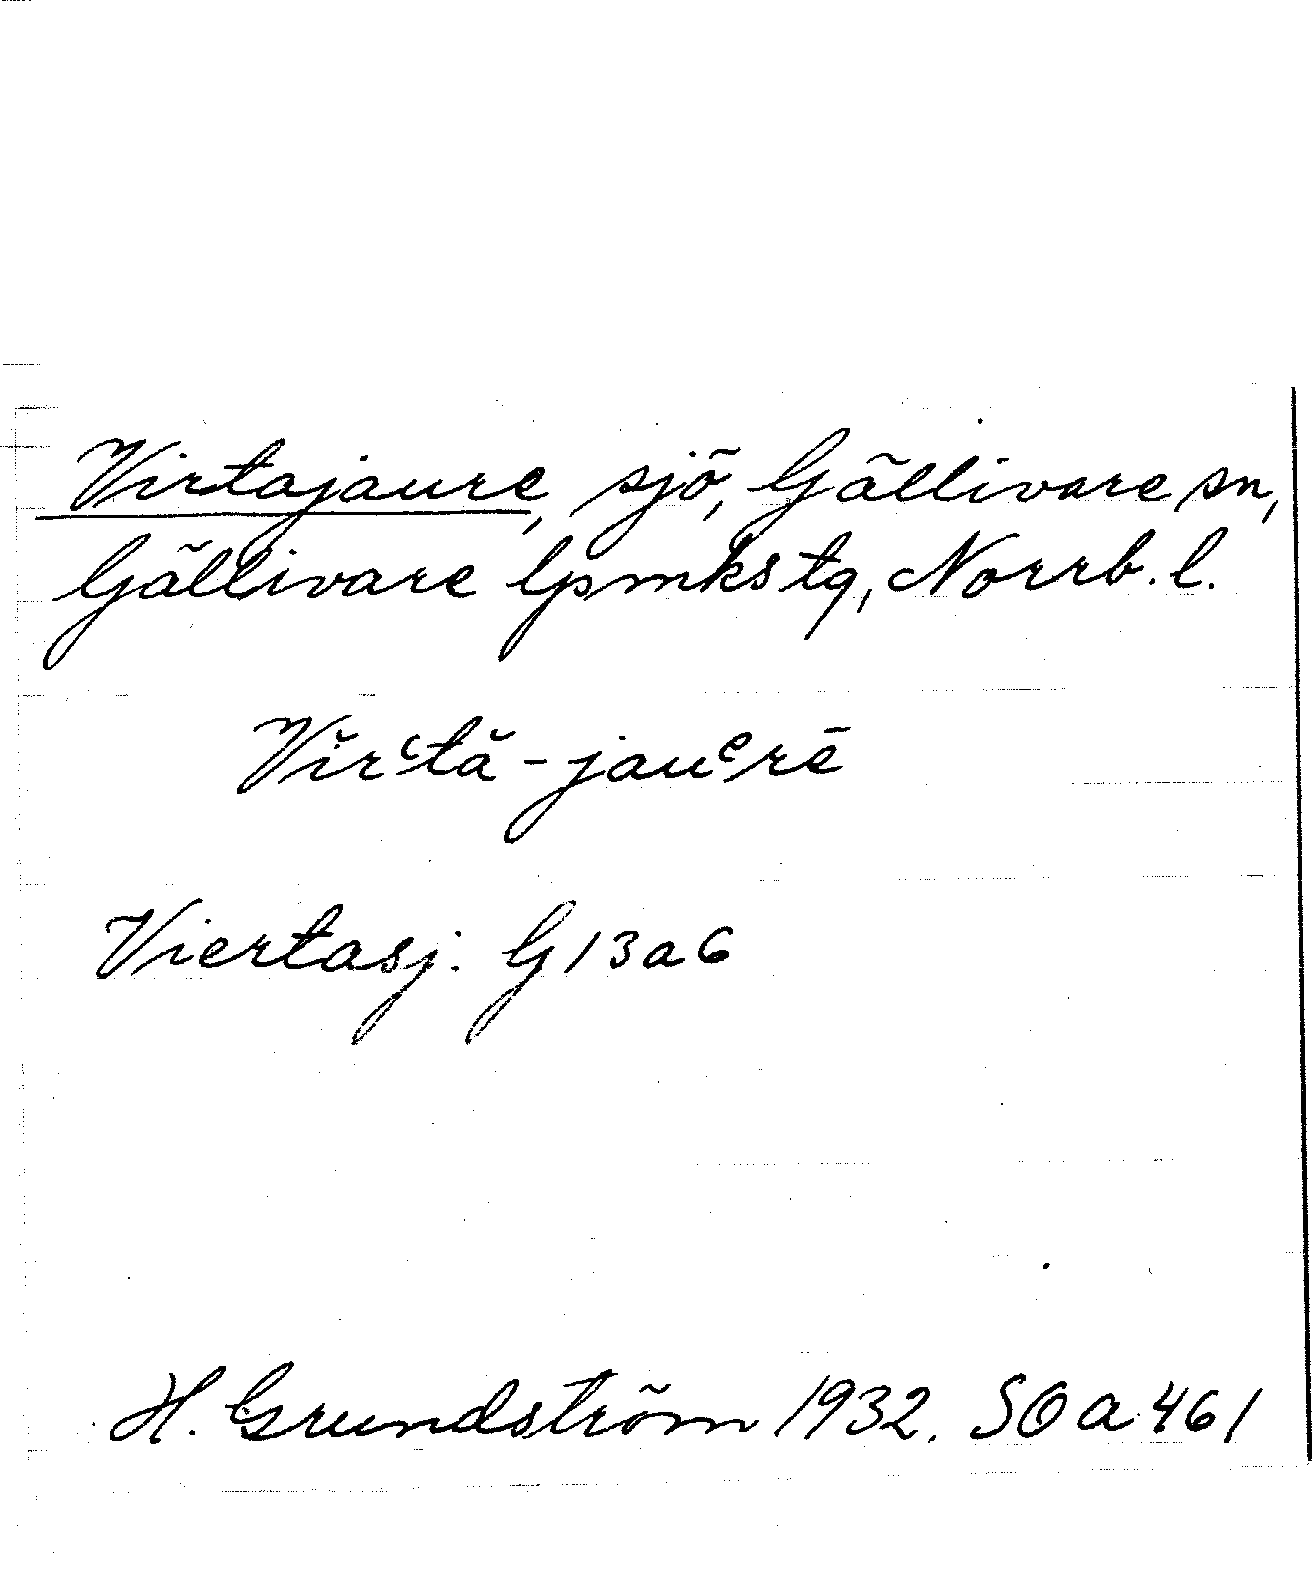 Virtajaure, sjö, Gällivare sn,
Gällivare lpmks tg, Norrb. l.
Vĭrʿtă-jauᵉrē
Viertasj. G 13 a 6
H. Grundström 1932. SOa 461